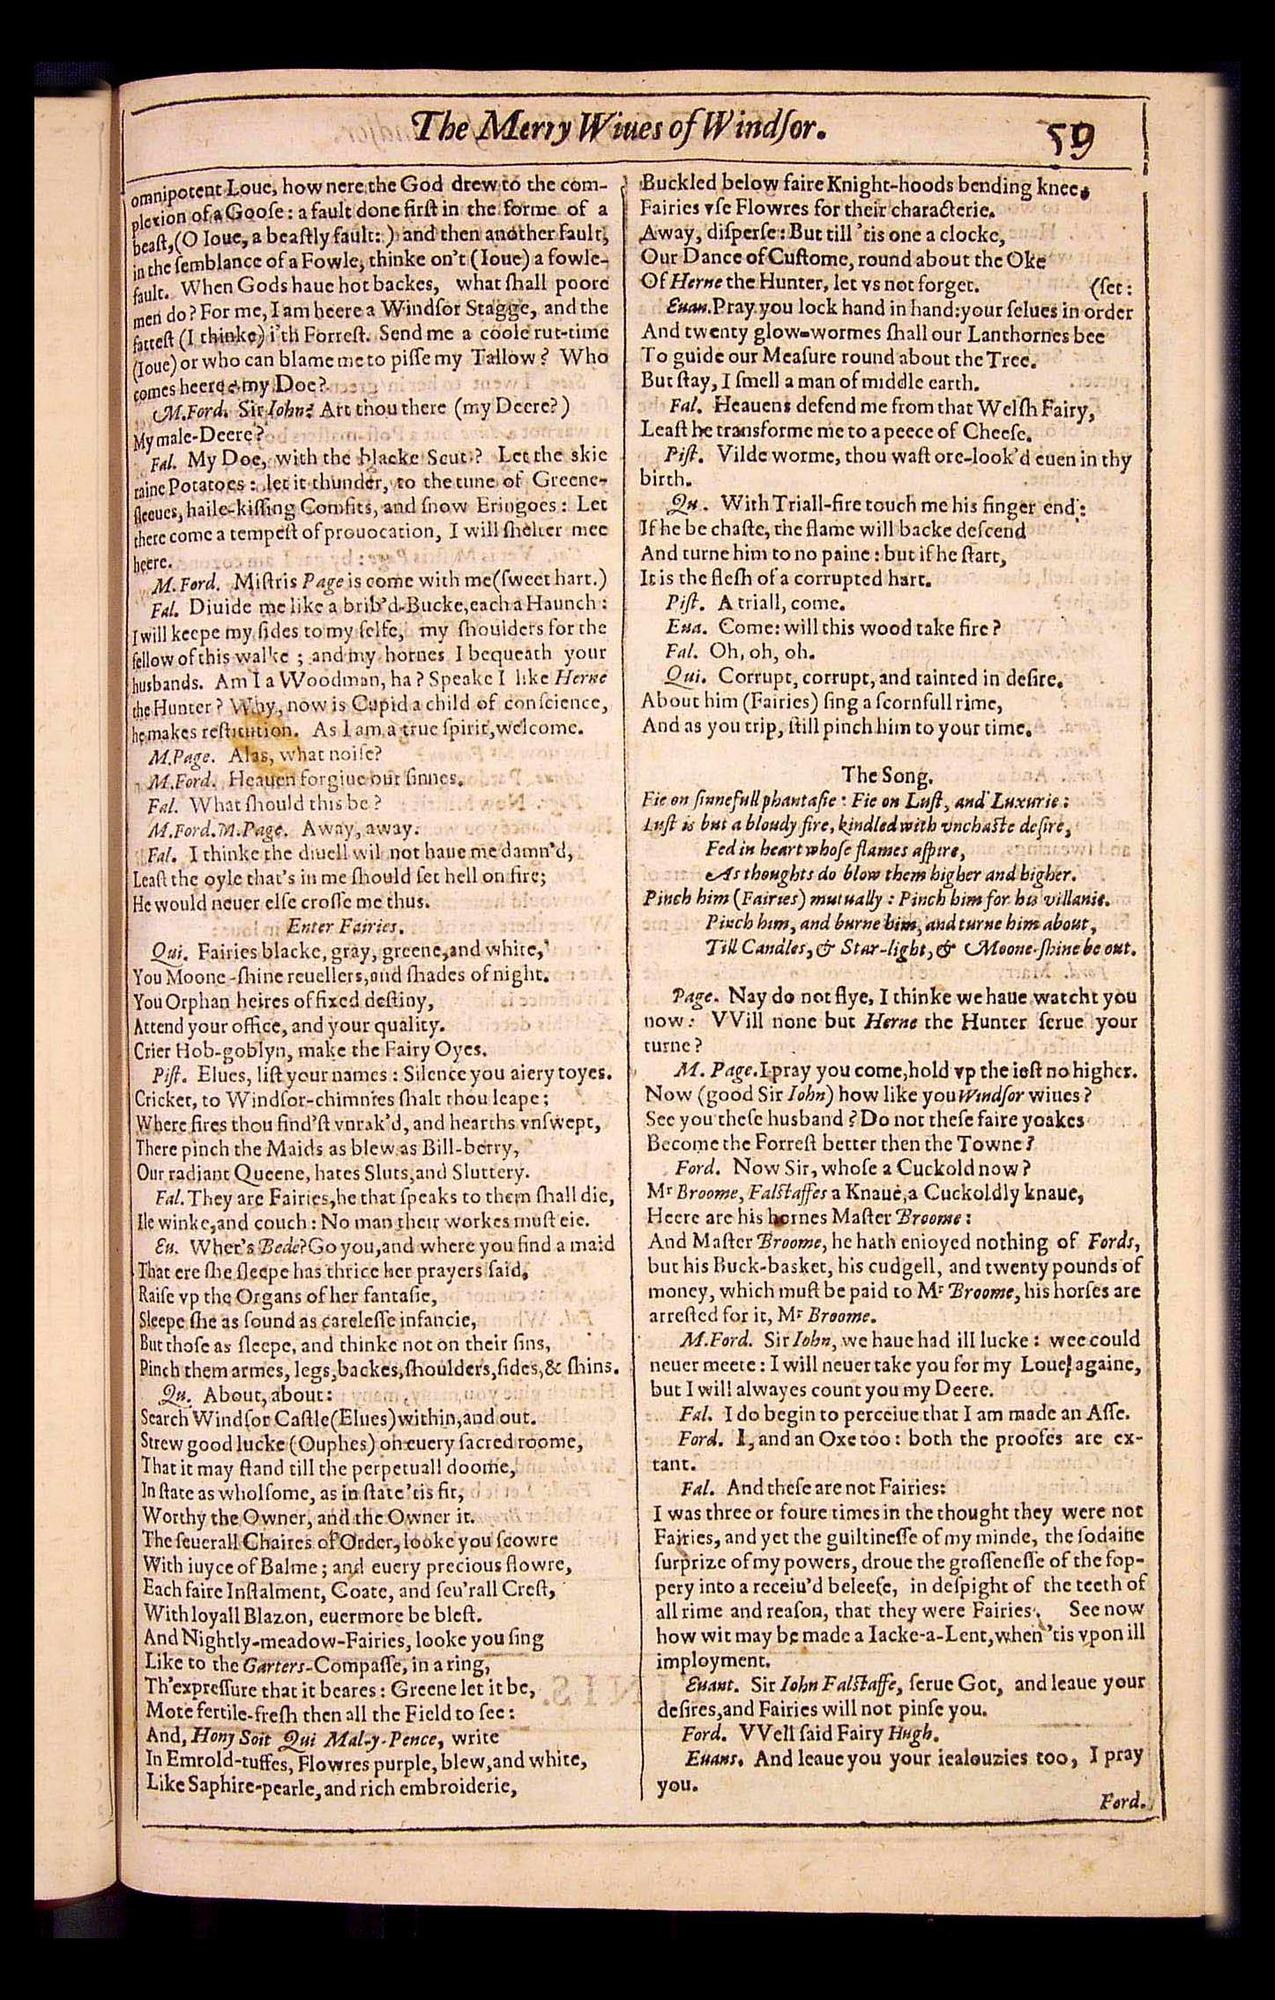 The Merry Wiues of Windſor.
59
omnipotent Loue, how nere the God drew to the com-
plexion of a Gooſe: a fault done firſt in the forme of a
beaſt, (O Ioue, a beaſtly fault: ) and then another fault,
in the ſemblance of a Fowle, thinke on't (Ioue) a fowle-
fault. When Gods haue hot backes, what ſhall poore
men do? For me, I am heere a Windſor Stagge, and the
fatteſt (I thinke) i'th Forreſt. Send me a coole rut-time
(Ioue) or who can blame me to piſſe my Tallow? Who
comes heere? my Doe?
M.Ford. Sir Iohn? Art thou there (my Deere?)
My male-Deere?
Fal. My Doe, with the blacke Scut? Let the skie
raine Potatoes: let it thunder, to the tune of Greene-
ſleeues, haile-kiſſing Comfits, and ſnow Eringoes: Let
there come a tempeſt of prouocation, I will ſhelter mee
heere.
M. Ford. Miſtris Page is come with me (ſweet hart.)
Fal. Diuide me like a brib'd-Bucke, each a Haunch:
I will keepe my ſides to my ſelfe, my ſhoulders for the
fellow of this walke ; and my hornes I bequeath your
husbands. Am I a Woodman, ha? Speake I like Herne
the Hunter? Why, now is Cupid a child of conſcience,
he makes reſtitution. As I am a true ſpirit, welcome.
M.Page. Alas, what noiſe?
M.Ford. Heauen forgiue our ſinnes.
Fal. What ſhould this be?
M.Ford.M.Page. Away, away.
Fal. I thinke the diuell wil not haue me damn'd,
Leaſt the oyle that's in me ſhould ſet hell on fire;
He would neuer elſe croſſe me thus.
Enter Fairies.
Qui. Fairies blacke, gray, greene, and white,
You Moone-ſhine reuellers, and ſhades of night.
You Orphan heires of fixed deſtiny,
Attend your office, and your quality.
Crier Hob-goblyn, make the Fairy Oyes.
Piſt. Elues, liſt your names: Silence you aiery toyes.
Cricket, to Windſor-chimnies ſhalt thou leape;
Where fires thou find'ſt vnrak'd, and hearths vnſwept,
There pinch the Maids as blew as Bill-berry,
Our radiant Queene, hates Sluts, and Sluttery.
Fal. They are Fairies, he that ſpeaks to them ſhall die,
Ile winke, and couch: No man their workes muſt eie.
Eu. Wher's Bede? Go you, and where you find a maid
That ere ſhe ſleepe has thrice her prayers ſaid,
Raiſe vp the Organs of her fantaſie,
Sleepe ſhe as ſound as careleſſe infancie,
But thoſe as ſleepe, and thinke not on their ſins,
Pinch them armes, legs, backes, ſhoulders, ſides, & ſhins.
Qu. About, about:
Search Windſor Caſtle (Elues) within, and out.
Strew good lucke (Ouphes) on euery ſacred roome,
That it may ſtand till the perpetuall doome,
In ſtate as wholſome, as in ſtate 'tis fit,
Worthy the Owner, and the Owner it.
The ſeuerall Chaires of Order, looke you ſcowre
With iuyce of Balme; and euery precious flowre,
Each faire Inſtalment, Coate, and ſeu'rall Creſt,
With loyall Blazon, euermore be bleſt.
And Nightly-meadow-Fairies, looke you ſing
Like to the Garters-Compaſſe, in a ring,
Th'expreſſure that it beares: Greene let it be,
Mote fertile-freſh then all the Field to ſee:
And, Hony Soit Qui Mal-y-Pence, write
In Emrold-tuffes, Flowres purple, blew, and white,
Like Saphire-pearle, and rich embroiderie,
Buckled below faire Knight-hoods bending knee,
Fairies vſe Flowres for their characterie.
Away, diſperſe: But till 'tis one a clocke,
Our Dance of Cuſtome, round about the Oke
Of Herne the Hunter, let vs not forget. (ſet:
Euan. Pray you lock hand in hand: your ſelues in order
And twenty glow-wormes ſhall our Lanthornes bee
To guide our Meaſure round about the Tree.
But ſtay, I ſmell a man of middle earth.
Fal. Heauens defend me from that Welſh Fairy,
Leaſt he transforme me to a peece of Cheeſe.
Piſt. Vilde worme, thou waſt ore-look'd euen in thy
birth.
Qu. With Triall-fire touch me his finger end:
If he be chaſte, the flame will backe deſcend
And turne him to no paine: but if he ſtart,
It is the fleſh of a corrupted hart.
Piſt. A triall, come.
Eua. Come: will this wood take fire?
Fal. Oh, oh, oh.
Qui. Corrupt, corrupt, and tainted in deſire.
About him (Fairies) ſing a ſcornfull rime,
And as you trip, ſtill pinch him to your time.
The Song.
Fie on ſinnefull phantaſie: Fie on Luſt, and Luxurie:
Luſt is but a bloudy fire, kindled with vnchaſte deſire,
Fed in heart whoſe flames aſpire,
As thoughts do blow them higher and higher.
Pinch him (Fairies) mutually: Pinch him for his villanie.
Pinch him, and burne him, and turne him about,
Till Candles, & Star-light, & Moone-ſhine be out.
Page. Nay do not flye, I thinke we haue watcht you
now: VVill none but Herne the Hunter ſerue your
turne?
M. Page. I pray you come, hold vp the ieſt no higher.
Now (good Sir Iohn) how like you Windſor wiues?
See you theſe husband? Do not theſe faire yoakes
Become the Forreſt better then the Towne?
Ford. Now Sir, whoſe a Cuckold now?
Mr Broome, Falſtaffes a Knaue, a Cuckoldly knaue,
Heere are his hornes Maſter Broome:
And Maſter Broome, he hath enioyed nothing of Fords,
but his Buck-basket, his cudgell, and twenty pounds of
money, which muſt be paid to Mr Broome, his horſes are
arreſted for it, Mr Broome.
M.Ford. Sir Iohn, we haue had ill lucke: wee could
neuer meete: I will neuer take you for my Loue againe,
but I will alwayes count you my Deere.
Fal. I do begin to perceiue that I am made an Aſſe.
Ford. I, and an Oxe too: both the proofes are ex-
tant.
Fal. And theſe are not Fairies:
I was three or foure times in the thought they were not
Fairies, and yet the guiltineſſe of my minde, the ſodaine
ſurprize of my powers, droue the groſſeneſſe of the fop-
pery into a receiu'd beleefe, in deſpight of the teeth of
all rime and reaſon, that they were Fairies. See now
how wit may be made a Iacke-a-Lent, when 'tis vpon ill
imployment.
Euant. Sir Iohn Falſtaffe, ſerue Got, and leaue your
deſires, and Fairies will not pinſe you.
Ford. VVell ſaid Fairy Hugh.
Euans. And leaue you your iealouzies too, I pray
you.
Ford.